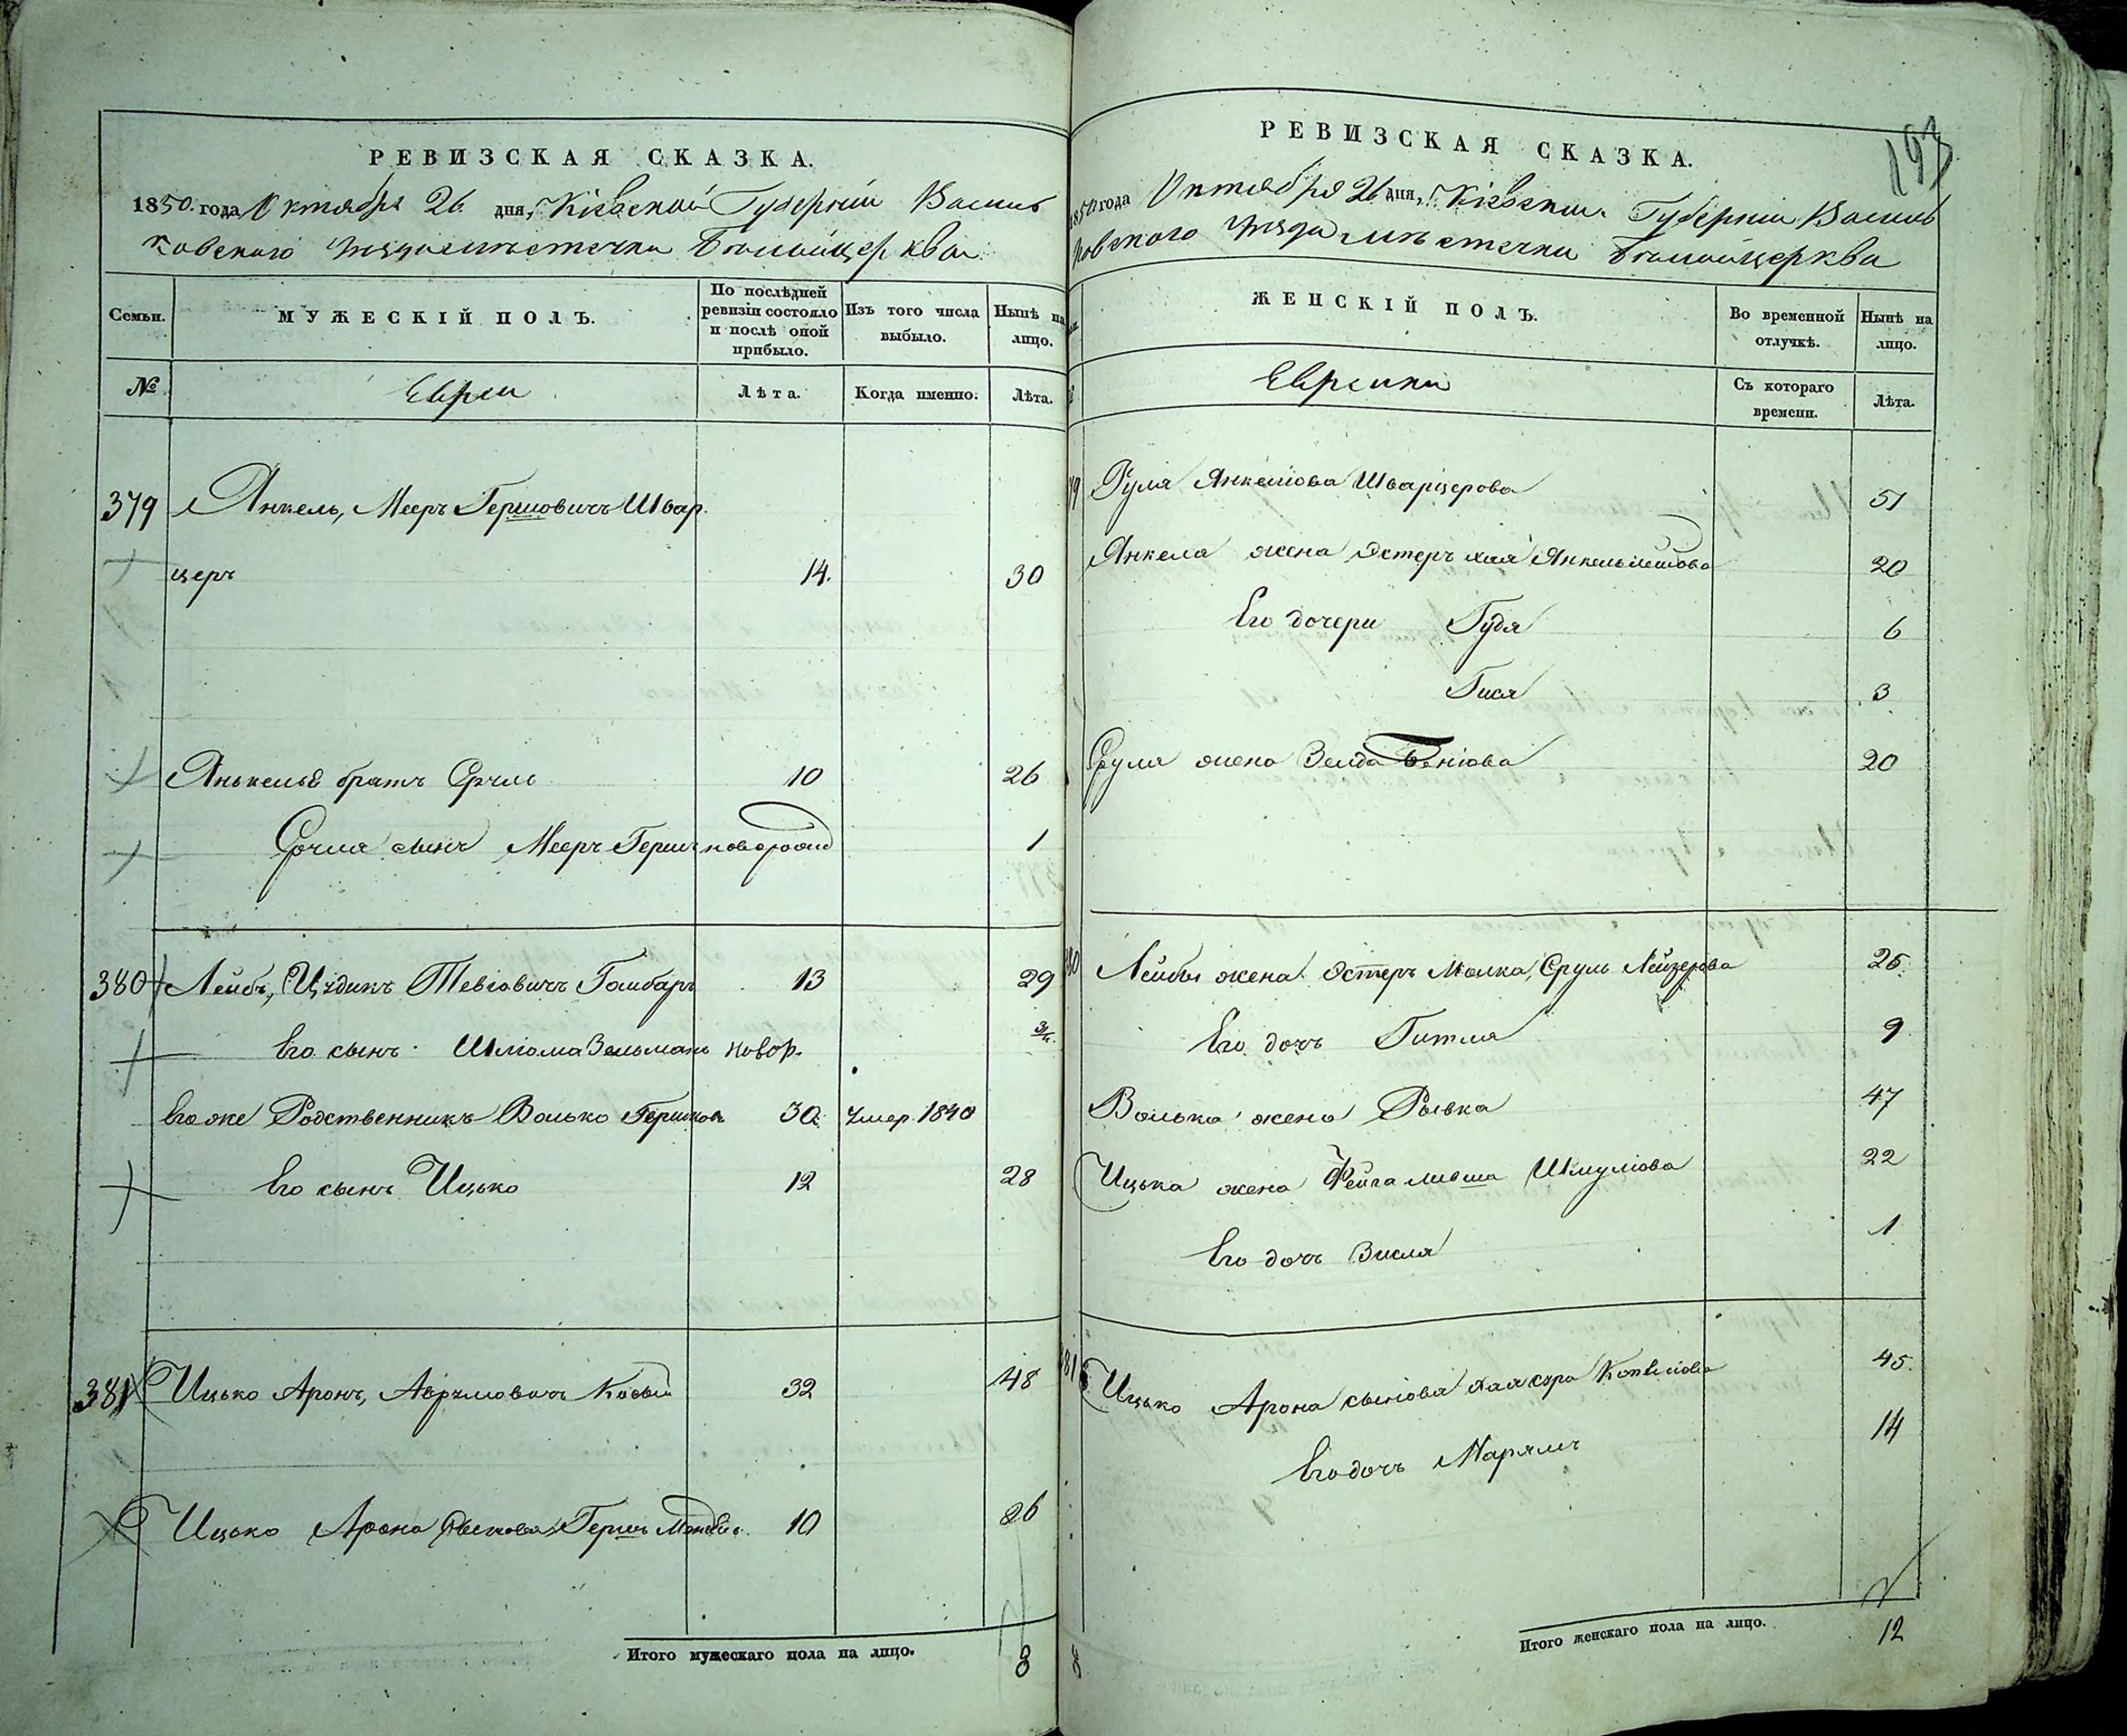 РЕВИЗСКАЯ СКАЗКА.
1850 года Октября 26 дня, Кіевской Губерніи Василь
ковского уезда местечка Белойцеркви
Семьи.
МУЖЕСКІЙ ПОЛЪ.
По послѣдней ревизіи состояло и послѣ оной прибыло.
Изъ того числа выбыло.
Нынѣ на лицо.
№
Евреи
Лѣта.
Когда именно.
Лѣта.
379 Янкель, Мееръ Гершовичъ Швар
церъ 14. 30
Янькеля братъ Сруль 10 26
Сруля сынъ Мееръ Гершъ новорожд 1
380 Лейбъ, Цудикъ Тевіовичъ Гамбаръ 13 29
Его сынъ Шлiома Зельманъ новор. 3/4.
Его же Родственникъ Волько Гершковъ 30 Умер. 1840
Его сынъ Ицько 12 28
381 Ицько Аронъ, Аврумовичъ 32 48
Ицько Арона Гершъ 10 26
Итого мужескаго пола на лицо. 8
193
РЕВИЗСКАЯ СКАЗКА.
1850 года Октября 26 дня, Кіевской Губерніи Василь
ковского уезда местечка Белойцеркви
ЖЕНСКІЙ ПОЛЪ.
Во временной отлучкѣ.
Нынѣ на лицо.
Еврейки
Съ котораго времени.
Лѣта.
79 Рухля Янкеліова Шварцерова 51
Янкеля жена Эстеръ хая 20
Его дочери Гудя 6
Гися 3
Сруля жена Зелда Беніова 20
80 Лейбы жена Эстеръ Малка, Сруль Лейзерова 25.
Его дочь Гитля 9
Волька жена Рывка 47
Ицька жена Фейга ливша Шмуліова 22
Его дочь Зисля 1
81 Ицько Арона хая сура 45.
Его дочь Марямъ 14
Итого женскаго пола на лицо. 12